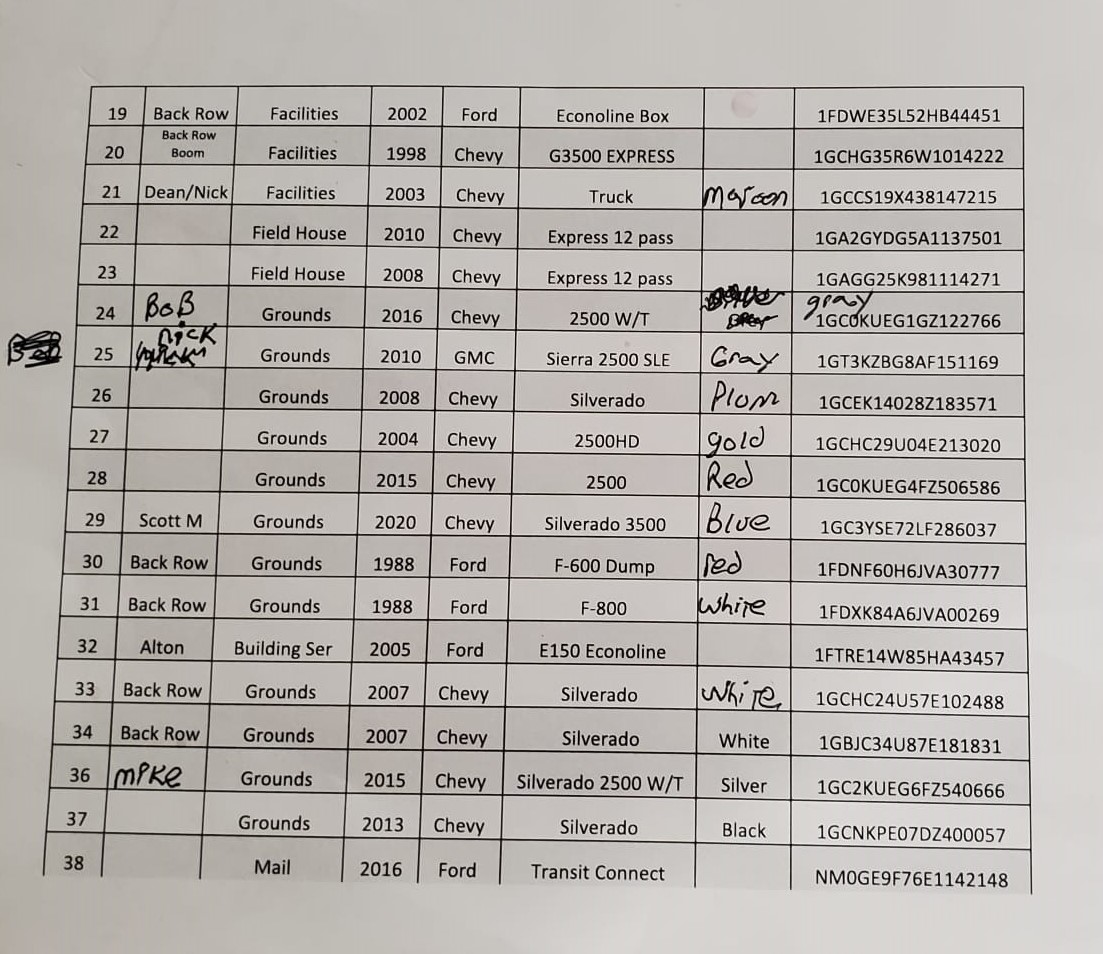 19 Back Row Facilities 2002 Ford Econoline Box 1FDWE35L52HB44451
20 Back Row Boom Facilities 1998 Chevy G3500 EXPRESS 1GCHG35R6W1014222
21 Dean/Nick Facilities 2003 Chevy Truck Maroon 1GCCS19X438147215
22 Field House 2010 Chevy Express 12 pass 1GA2GYDG5A1137501
23 Field House 2008 Chevy Express 12 pass 1GAGG25K981114271
24 BoB Grounds 2016 Chevy 2500 W/T gray 1GC0KUEG1GZ122766
25 nicK Grounds 2010 GMC Sierra 2500 SLE Gray 1GT3KZBG8AF151169
26 Grounds 2008 Chevy Silverado Plum 1GCEK14028Z183571
27 Grounds 2004 Chevy 2500HD gold 1GCHC29U04E213020
28 Grounds 2015 Chevy 2500 Red 1GC0KUEG4FZ506586
29 Scott M Grounds 2020 Chevy Silverado 3500 Blue 1GC3YSE72LF286037
30 Back Row Grounds 1988 Ford F-600 Dump red 1FDNF60H6JVA30777
31 Back Row Grounds 1988 Ford F-800 White 1FDXK84A6JVA00269
32 Alton Building Ser 2005 Ford E150 Econoline 1FTRE14W85HA43457
33 Back Row Grounds 2007 Chevy Silverado White 1GCHC24U57E102488
34 Back Row Grounds 2007 Chevy Silverado White 1GBJC34U87E181831
36 mike Grounds 2015 Chevy Silverado 2500 W/T Silver 1GC2KUEG6FZ540666
37 Grounds 2013 Chevy Silverado Black 1GCNKPE07DZ400057
38 Mail 2016 Ford Transit Connect NM0GE9F76E1142148